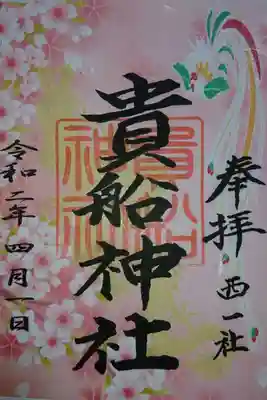 奉拝
西一社
貴船神社
貴船神社
令和二年四月一日